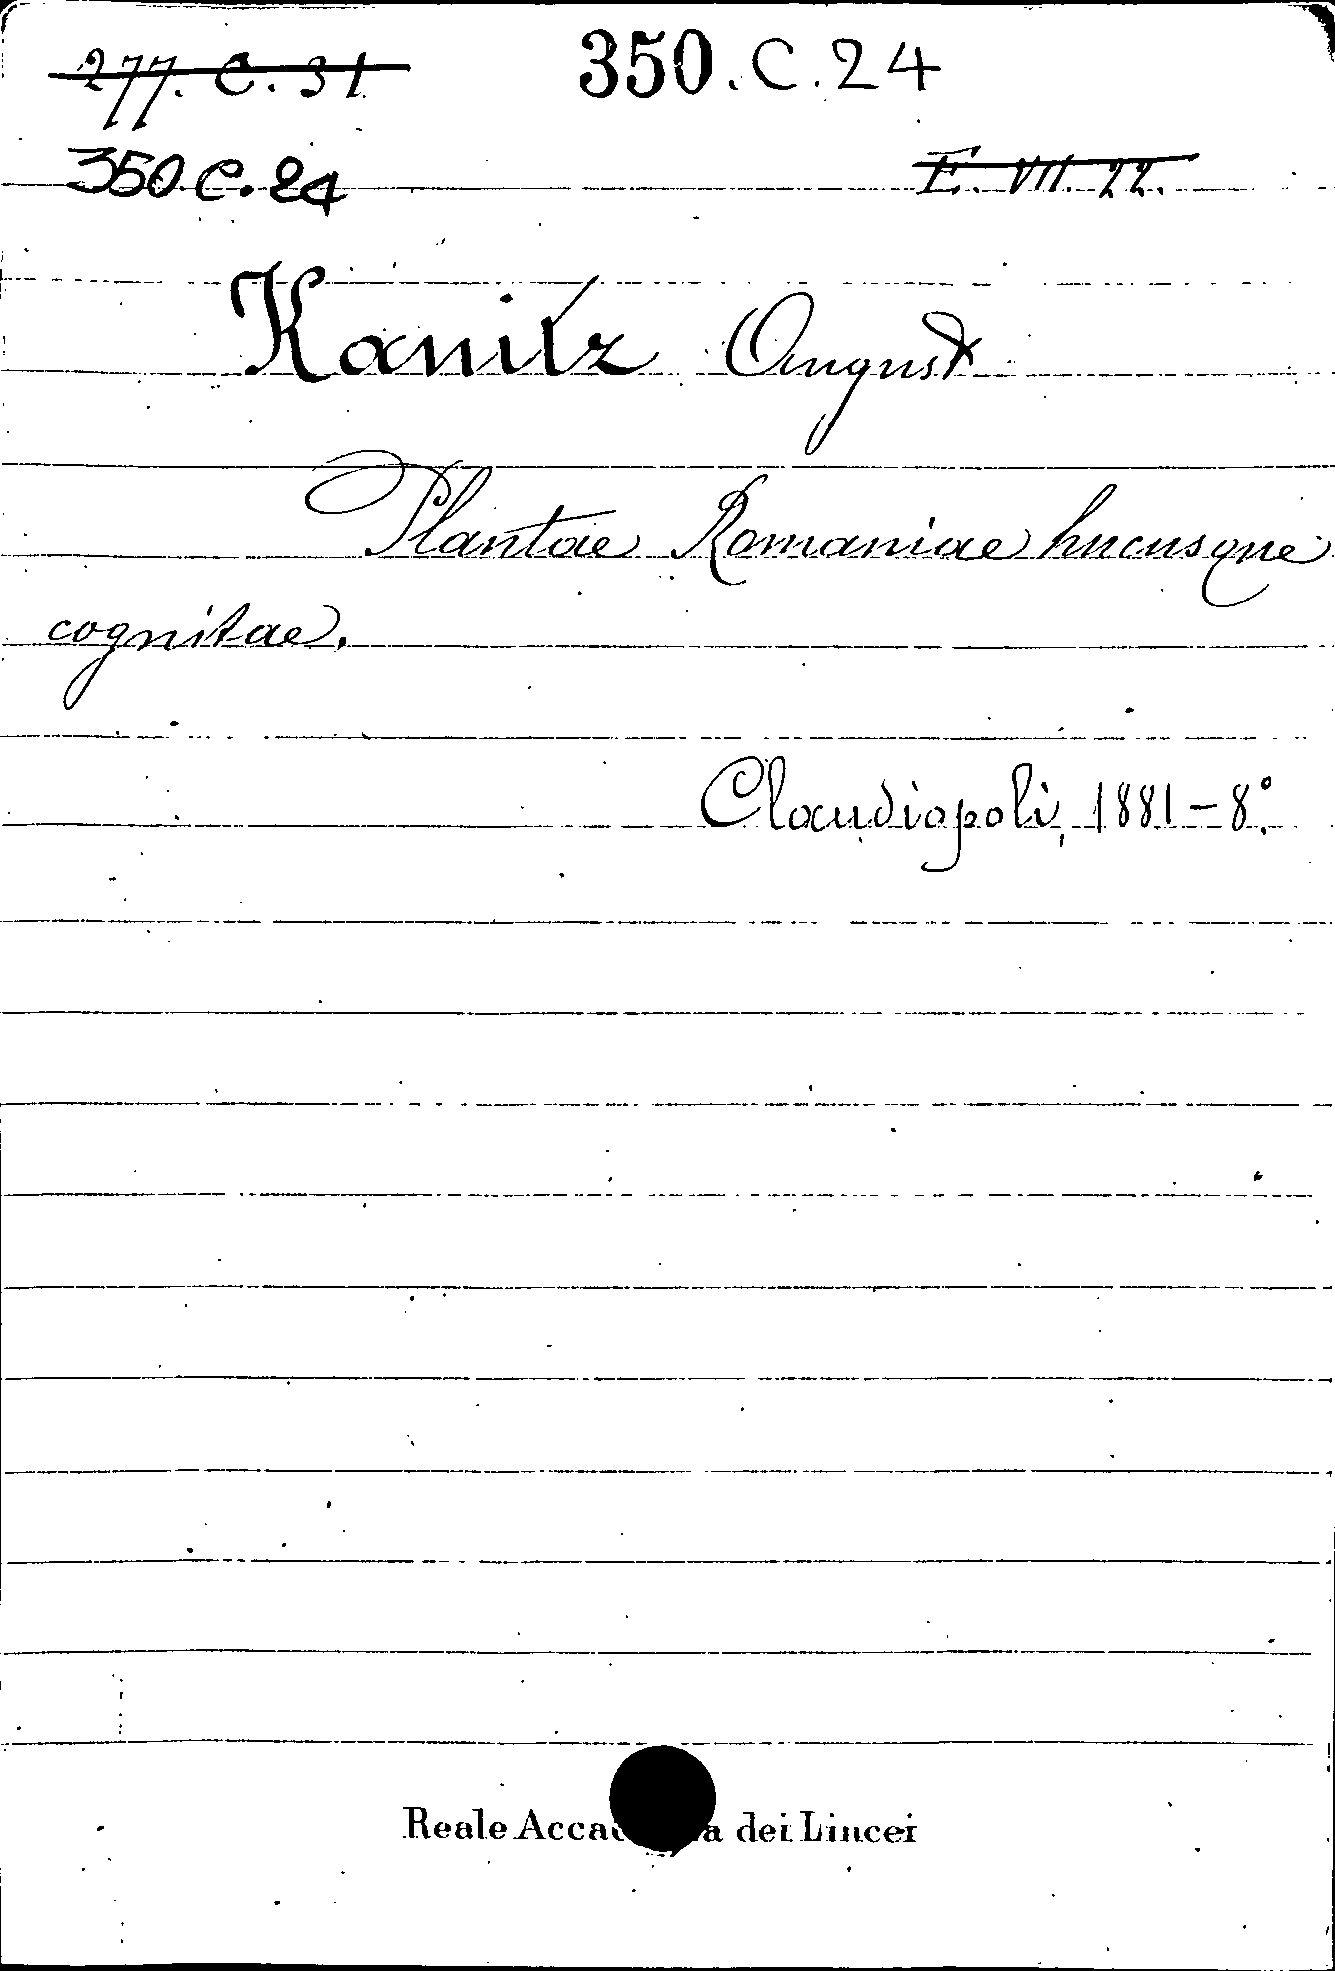 277. C. 31
350. C. 24
350. C. 24
E. VII. 22.
Kanitz August
Plantae Romaniae hucusque
cognitae.
Claudiopoli, 1881 - 8°.
Reale dei Lincei